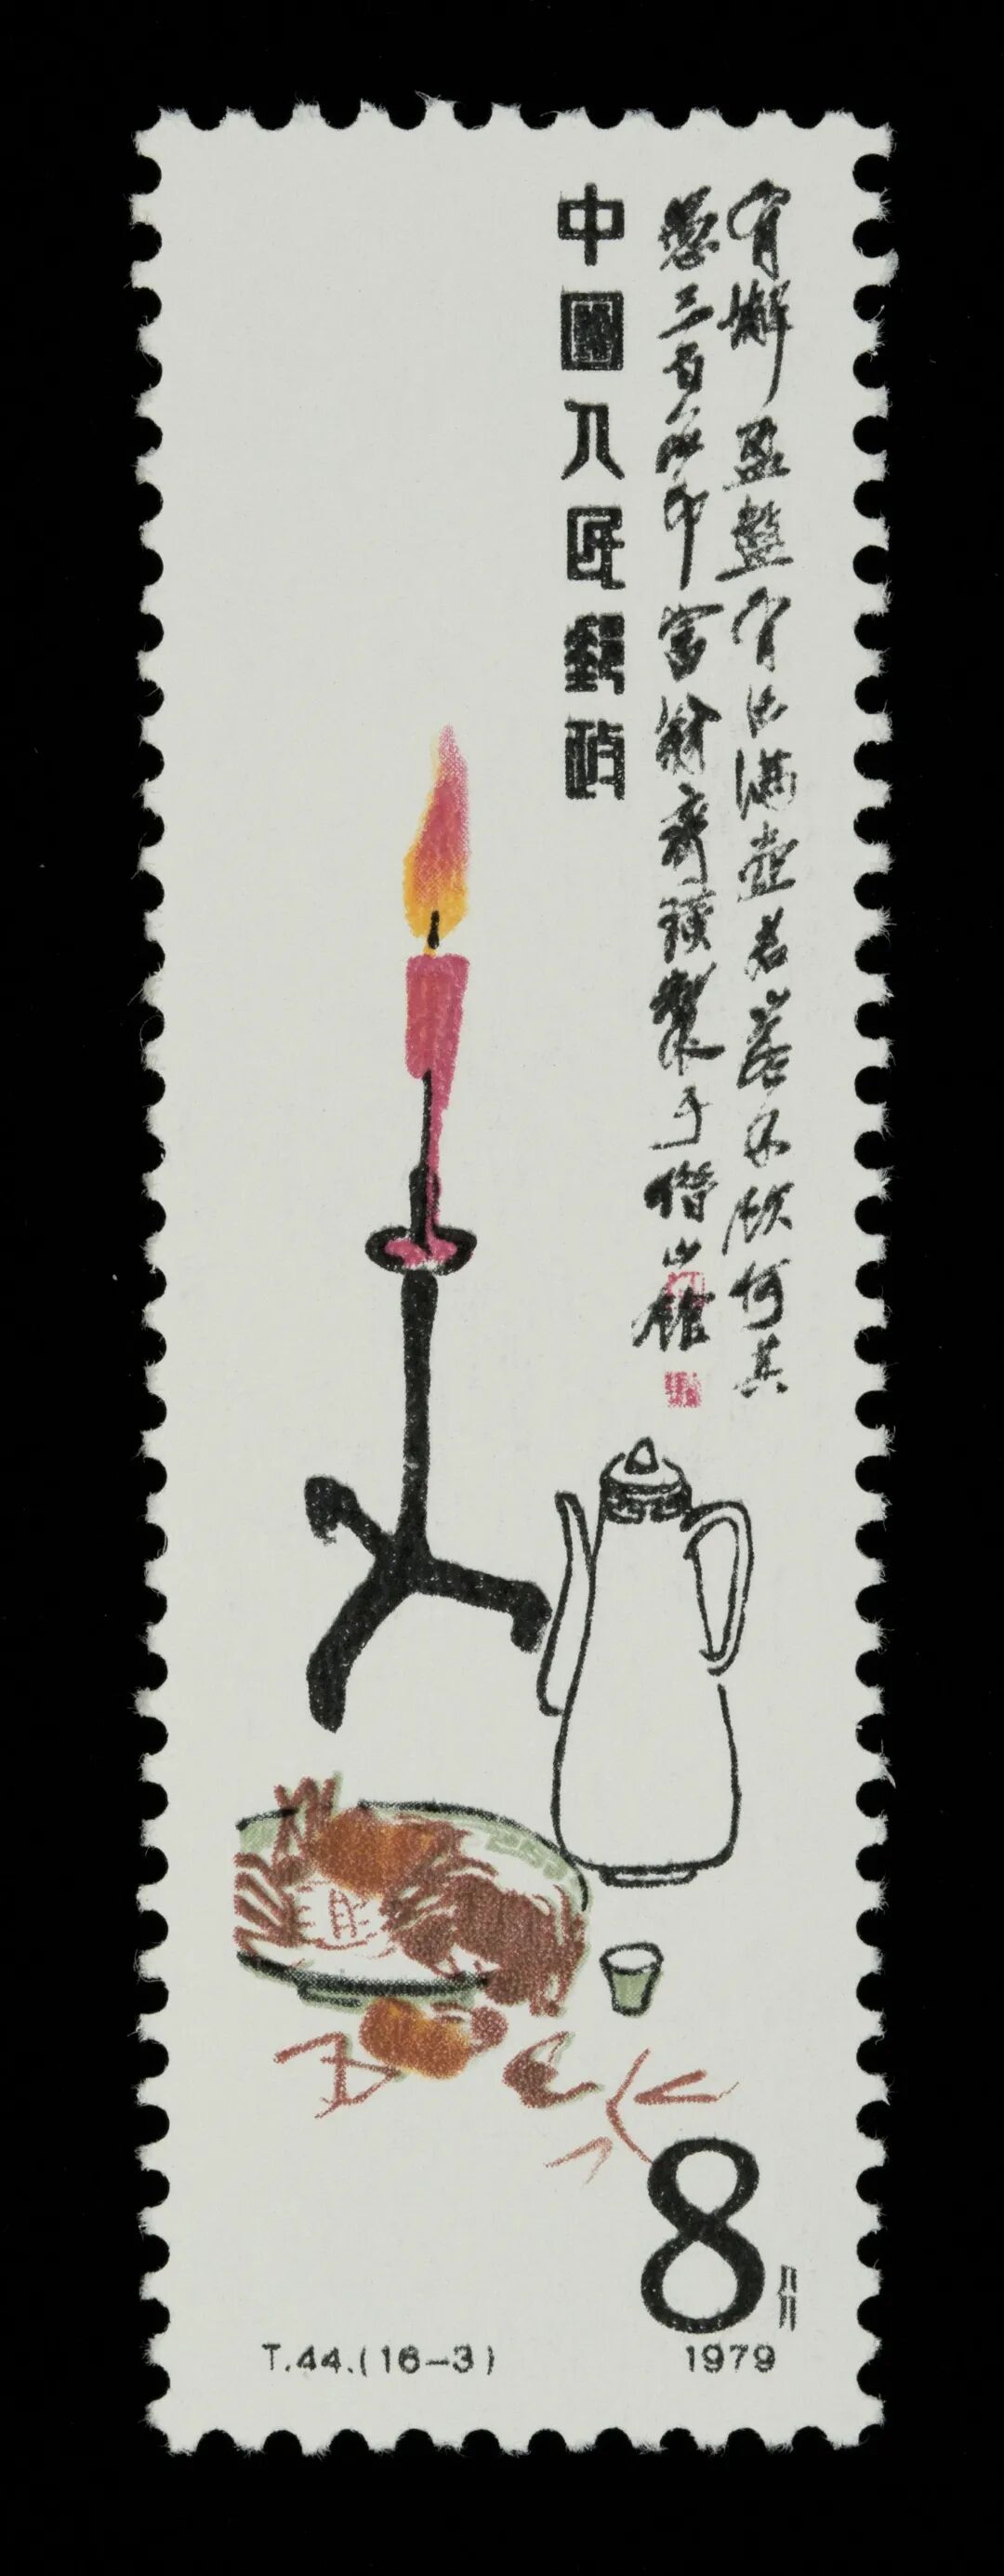 有蠏盈盤有酒滿壺君若不飲何其
愚三百石印富翁齊璜製于借山館
中國人民郵政
8分
T.44.(16-3) 1979